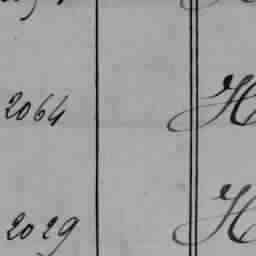 2064 H
2029 H